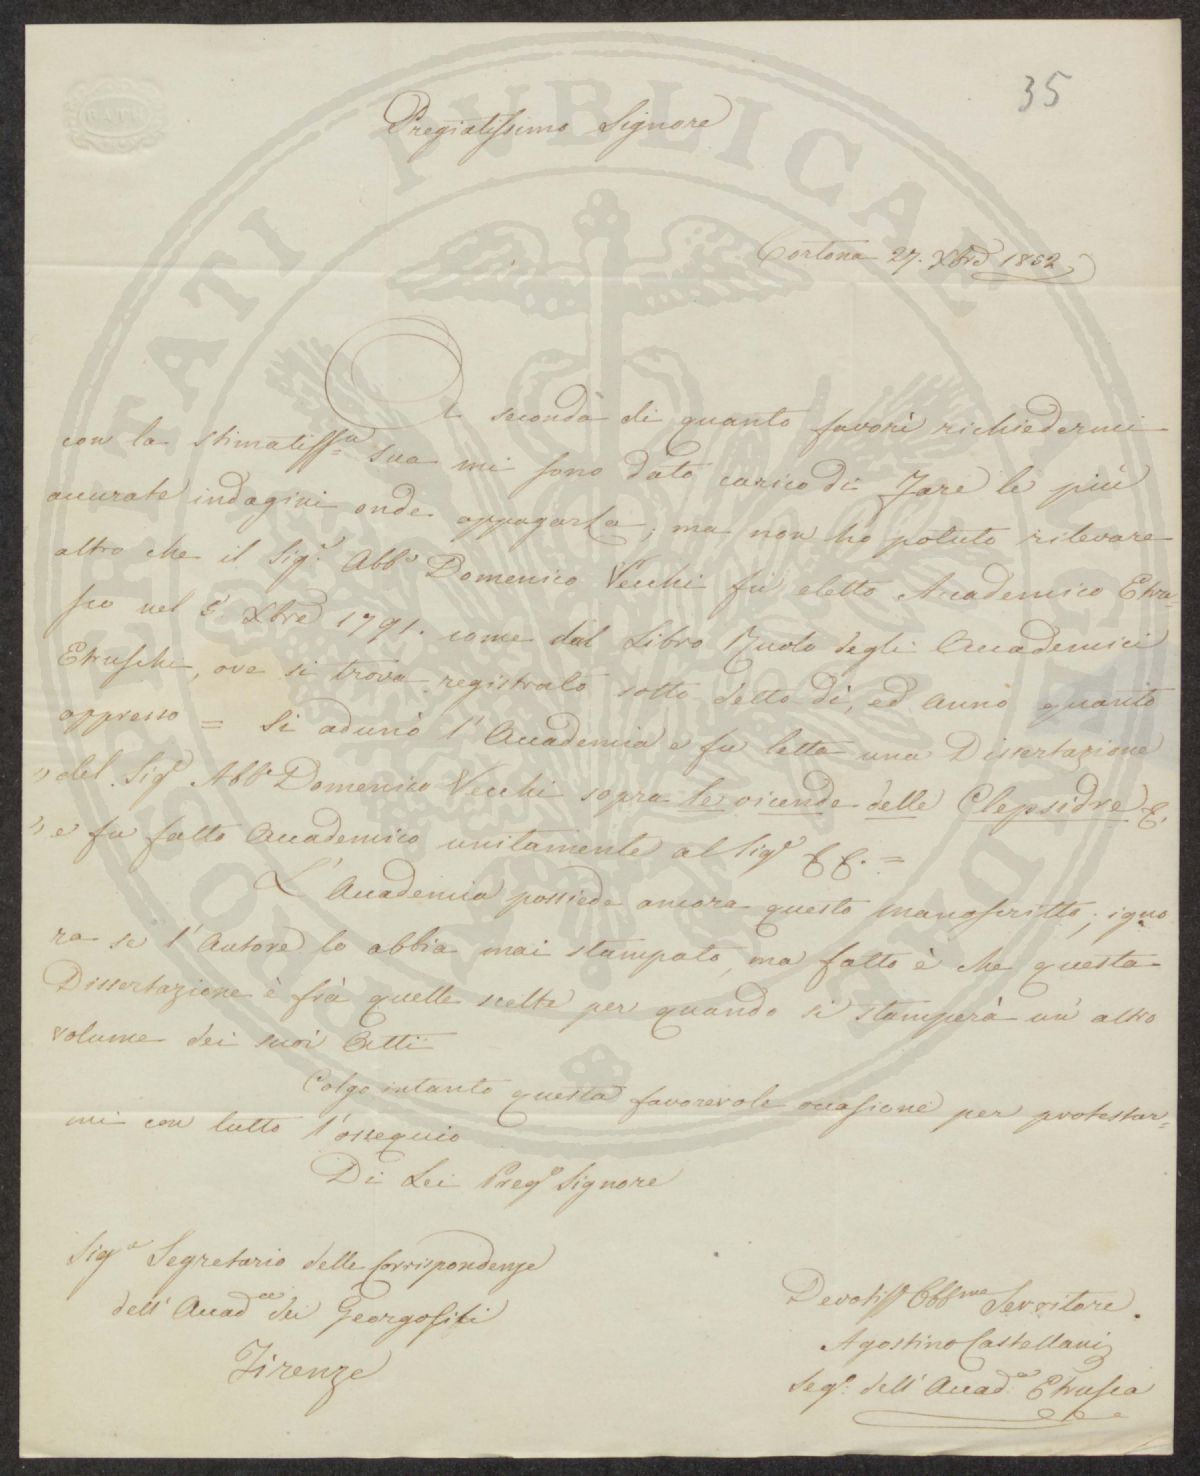 35
Pregiatissimo Signore
Cortona 27. Xbre 1852
A seconda di quanto favorì richiedermi
con la stimatissa sua mi sono dato carico di fare le più
accurate indagini onde appagarla; ma non ho potuto rilevare
altro che il Sigr. Abbe Domenico Vecchi fù eletto Accademico Etru=
sco nel Xbre 1791. come dal Libro Ruolo degli Accademici
Etruschi, ove si trova registrato sotto detto dì, ed Anno quanto
appresso = Si adunò l'Accademia e fu letta una Dissertazione
" del Sigr Abbe Domenico Vecchi sopra le vicende delle Clepsidre &,
" e fu fatto Accademico unitamente al Sigr && . =
L'Accademia possiede ancora questo manoscritto; igno
ra se l'Autore lo abbia mai stampato, ma fatto è che questa
Dissertazione è frà quelle scelte per quando si stamperà un'altro
volume dei suoi Atti
Colgo intanto questa favorevole occasione per protestar=
mi con tutto l'ossequio
Di Lei Prego Signore
Sigr Segretario delle Corrispondenze
dell'Accad. dei Georgofili
Firenze
Devotiss Obbmo Servitore
Agostino Castellani
Segr. dell'Accada Etrusca
PVBLICAE